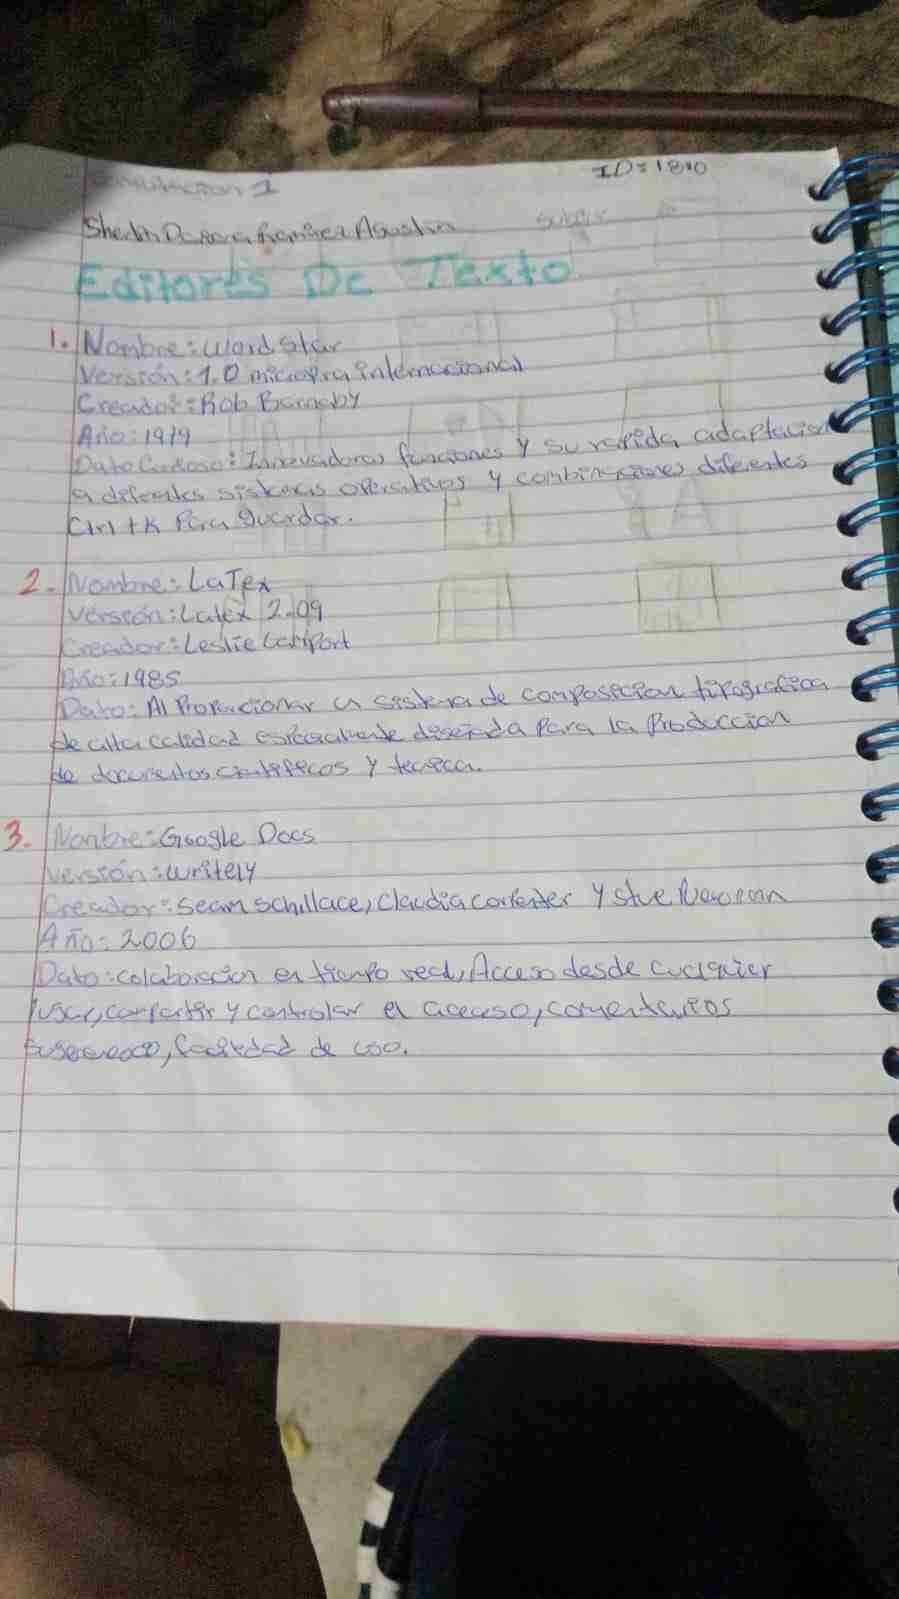 Computacion 1
ID=1810
Sherlin Ramirez Agustin
Editores De Texto
1. Nombre: Word Star
Versión: 1.0 micropra internacional
Creador: Rob Barnaby
Año: 1979
Dato Curioso: Innovadoras funciones y su rapida adaptacion
a diferentes sistemas operativos y combinaciones diferentes
Ctrl+K Para guardar.
2. Nombre: LaTex
Versión: Latex 2.09
Creador: Leslie Lamport
Año: 1985
Dato: Al Proporcionar un sistema de composicion tipografica
de alta calidad especialmente diseñada para la Produccion
de documentos cientificos y tecnica.
3. Nombre: Google Docs
Versión: writely
Creador: Seam schillace, Claudia Carpenter y Newman
Año: 2006
Dato: colaboracion en tiempo real, Acceso desde cualquier
lugar, compartir y controlar el acceso, comentarios
facilidad de uso.